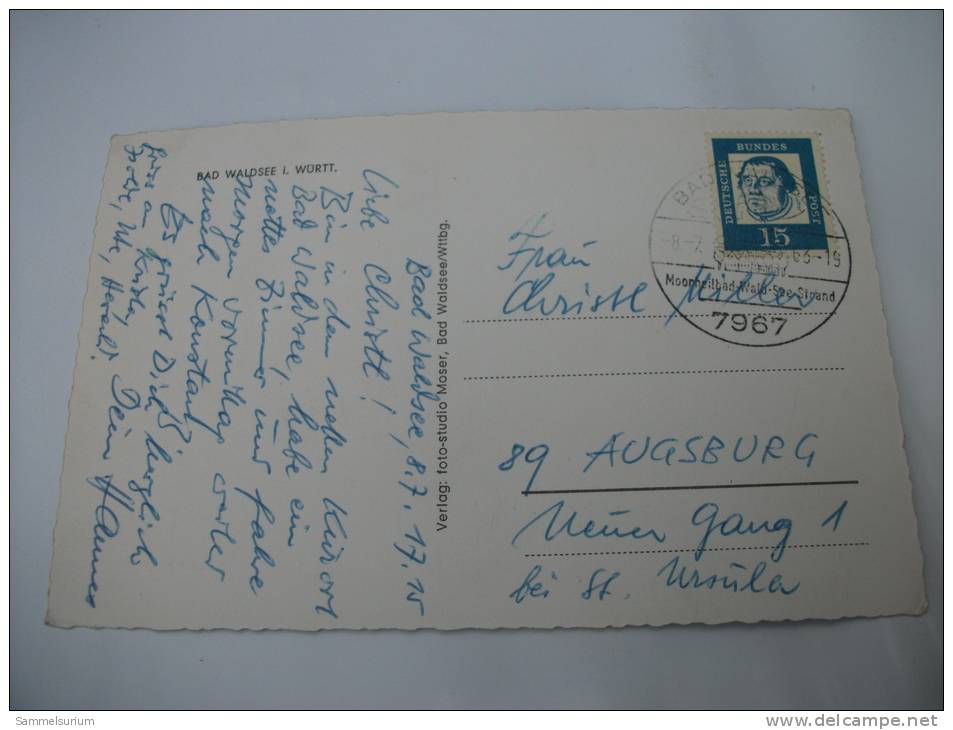 BAD WALDSEE I. WÜRTT.
Bad Waldsee, 8.7. 17.15
Liebe Christl!
Bin in dem netten Kurort
Bad Waldsee, habe ein
nettes Zimmer und fahre
morgen Vormittag weiter
nach Konstanz
Es grüsst Dich herzlich
Dein Hannes
Grüsse an Kristin,
Ute, Herbald!
Verlag: foto-studio Moser, Bad Waldsee/Wttbg.
DEUTSCHE BUNDES POST
15
BAD
-8.-7. 63-19
Moorheilbad-Wald-See-Strand
7967
Frau
Christl Miller
89 AUGSBURG
Neuer Gang 1
bei St. Ursula
Sammelsurium
www.delcampe.net